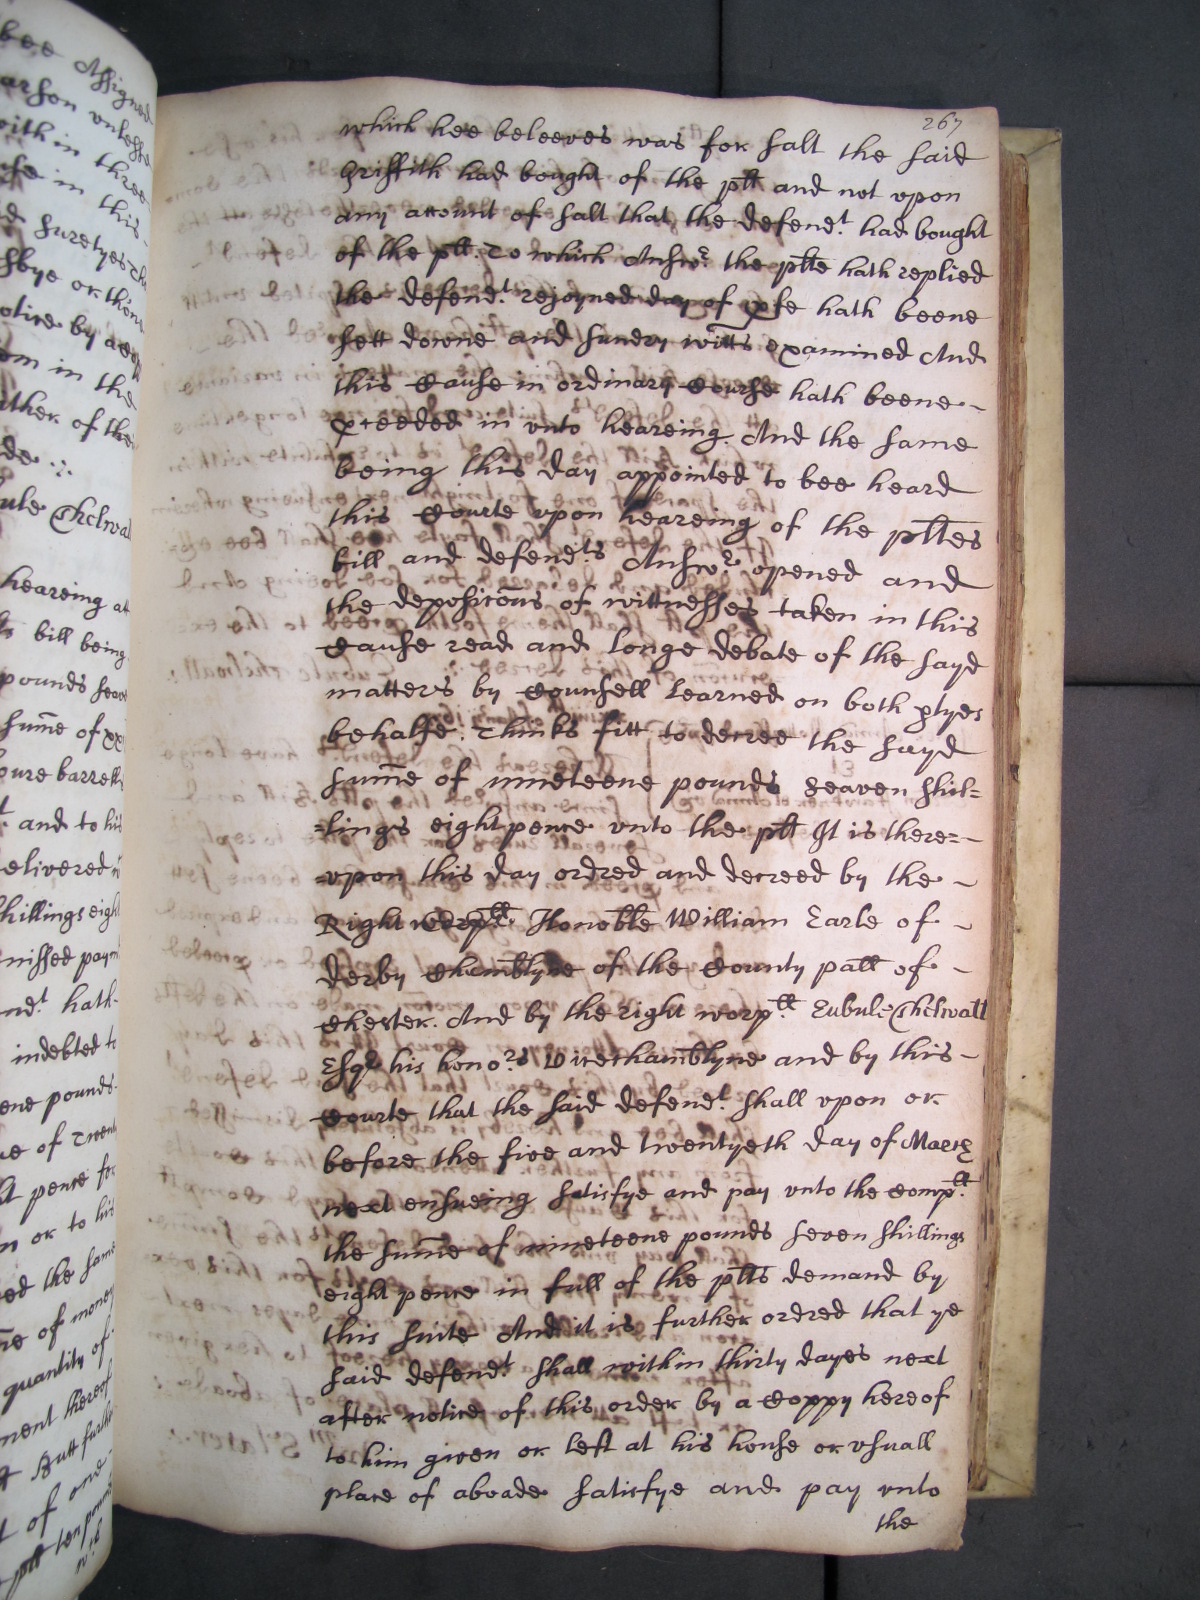 267
which hee beleeves was for salt the said
Griffith had bought of the plt and not upon
any account of salt that the defendt. had bought
of the plt. To which Answr. the plte hath replied
the defendt. rejoyned day of pfe hath beene
sett downe and sundry witts examined And
this Cause in ordinary Course hath beene
pceeded in unto heareing. And the same
being this day appointed to bee heard
this Courte upon heareing of the pltes
bill and defendts Answr. opened and
the deposicons of wittnesses taken in this
Cause read and longe debate of the sayd
matters by Counsell Learned on both ptyes
behalfe. Thinks fitt to decree the sayd
sume of nineteene pounds seaven shil=
=lings eight pence unto the plt It is there=
=upon this day ordred and decreed by the
Right Honoble William Earle of
Derby Chamblyne of the County pall of
Chester. And by the right worpll. Eubule Thelwall
Esqr his honors Vicechamblyne and by this
Courte that the said defendt. shall upon or
before the five and twentyeth day of March
next ensueing satisfye and pay unto the Complt.
the sume of nineteene pounds seven shillings
eight pence in full of the plts demand by
this suite And it is further ordred that ye
said defendt. shall within thirty dayes next
after notice of this order by a Coppy hereof
to him given or left at his house or usuall
place of aboade satisfye and pay unto
the
bee Assigned
unlesse
within three
in this
suretyes
or
notice by a
in the
of the
Thelwall
heareing
bill being
pounds
sume of
barrells
and to his
delivered
shillings eight
hath
indebted
pounds
of
pence for
or to his
the same
of money
quantity of
hereof
Butt further
of one
plt ten pounds